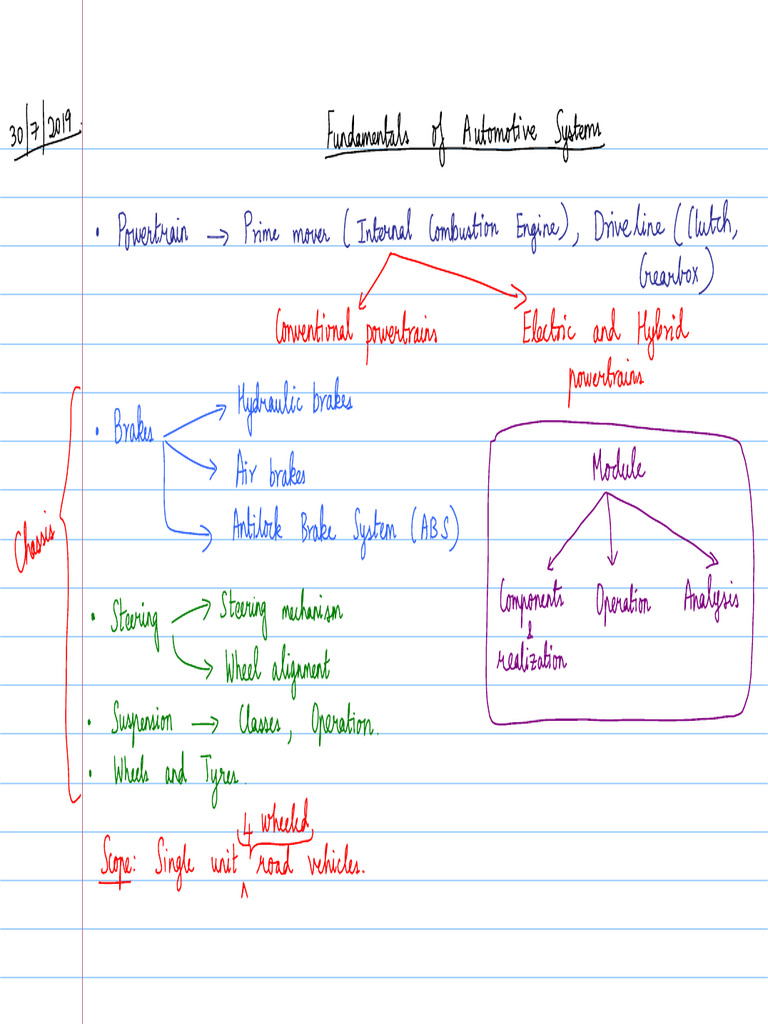 30/7/2019.
Fundamentals of Automotive Systems
• Powertrain → Prime mover (Internal Combustion Engine), Driveline (Clutch,
Gearbox)
Conventional powertrains
Electric and Hybrid
powertrains
Chassis
• Brakes
Hydraulic brakes
Air brakes
Antilock Brake System (ABS)
• Steering
Steering mechanism
Wheel alignment
• Suspension → Classes, Operation.
• Wheels and Tyres.
Module
Components
&
realization
Operation
Analysis
4 wheeled
Scope: Single unit ^ road vehicles.